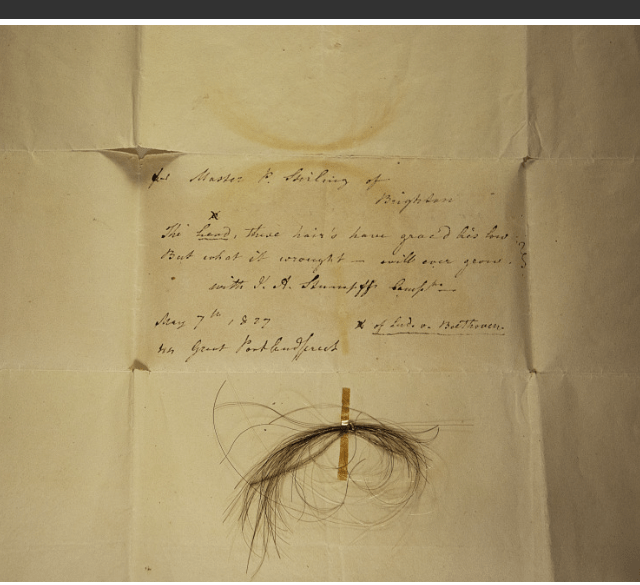 for Master P. Stirling of
Brighton
x
The head, these hair's have grac'd lies low
But what it wrought — will ever grow.
with J. A. Stumpff's Compts—
May 7th 1837
44 Great Portland Street
x of Lud. v. Beethoven.